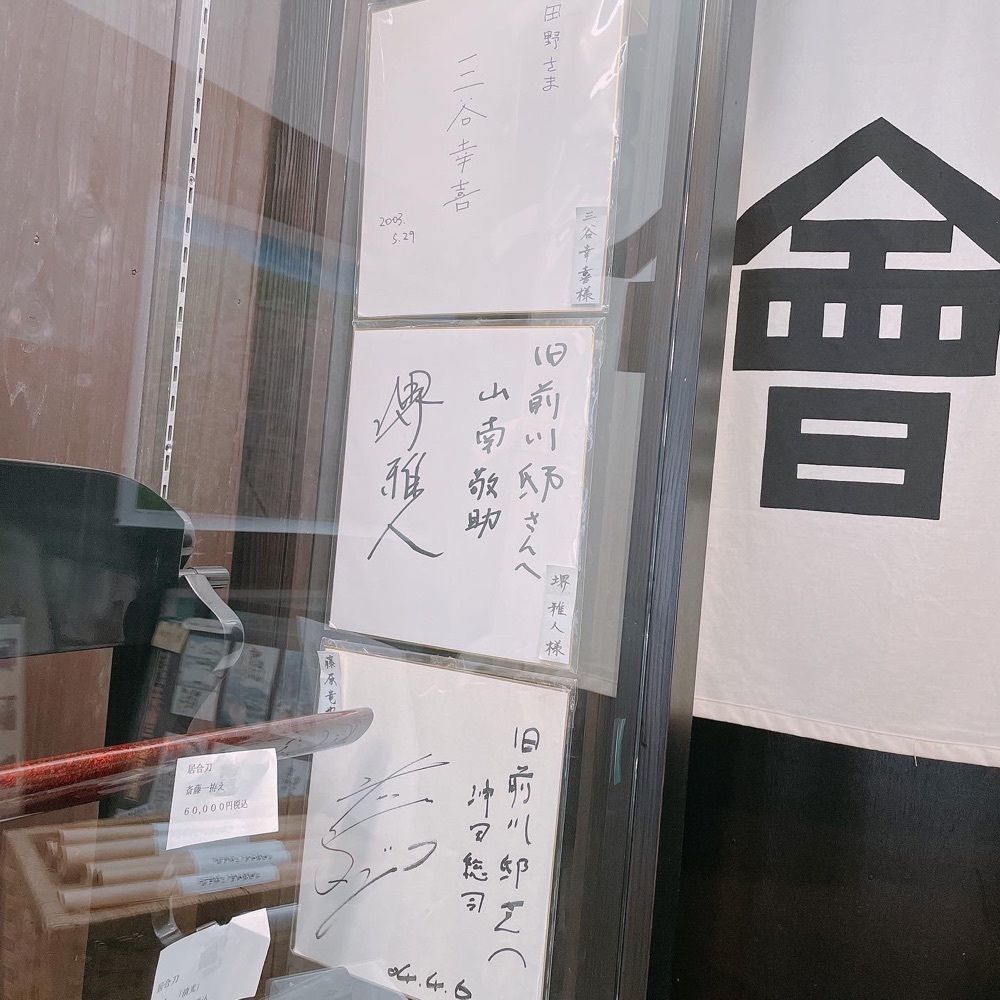 田野さま
三谷幸喜
2003.
5.29
三谷幸喜様
旧前川邸さんへ
山南敬助
堺雅人
堺雅人様
藤原竜也
旧前川邸さんへ
沖田総司
04.4.6
居合刀
60,000円税込
居合刀
會